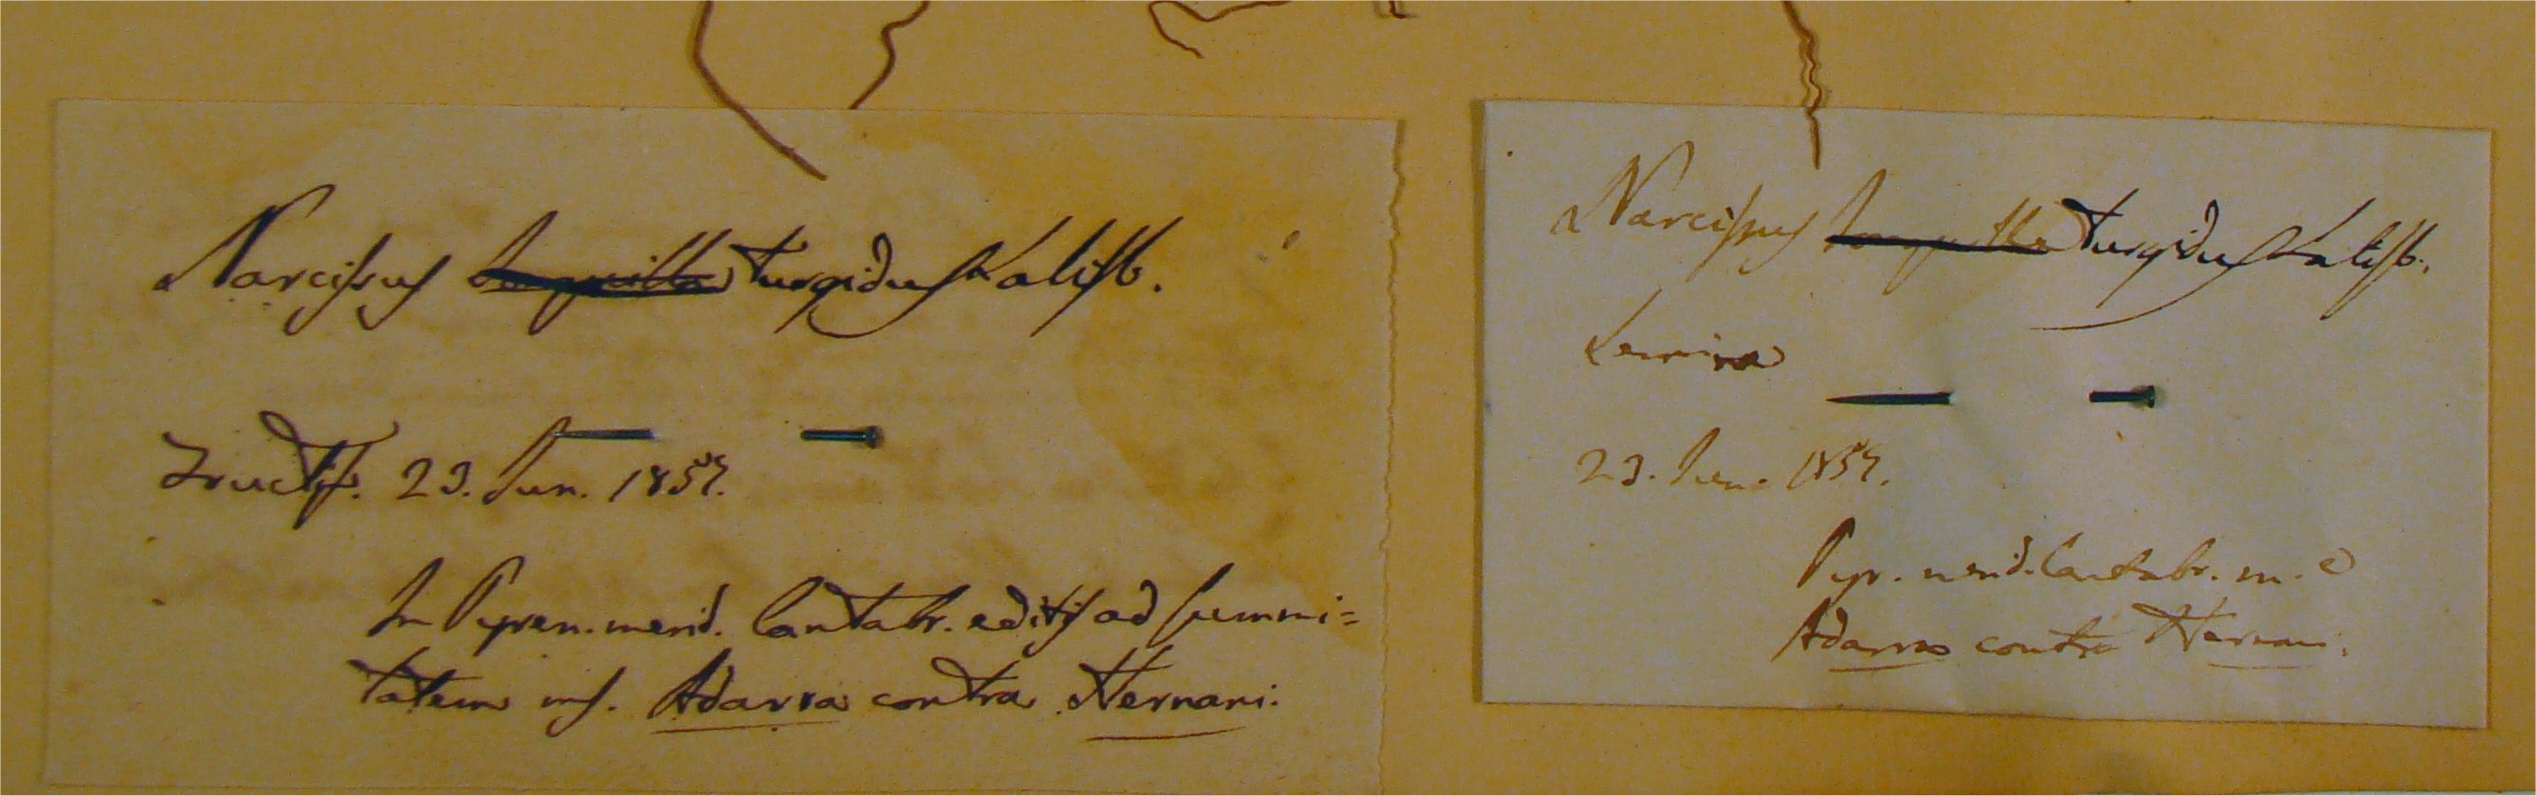 Narcissus turgidus Salisb.
Fructif. 23. Jun. 1857.
In Pyren. merid. Cantabr. editis ad summi=
tatem ms. Adarra contra Hernani.
Narcissus turgidus Salisb.
Semina
23. Jun. 1857.
Pyr. merid. Cantabr. m.
Adarra contra Hernani.